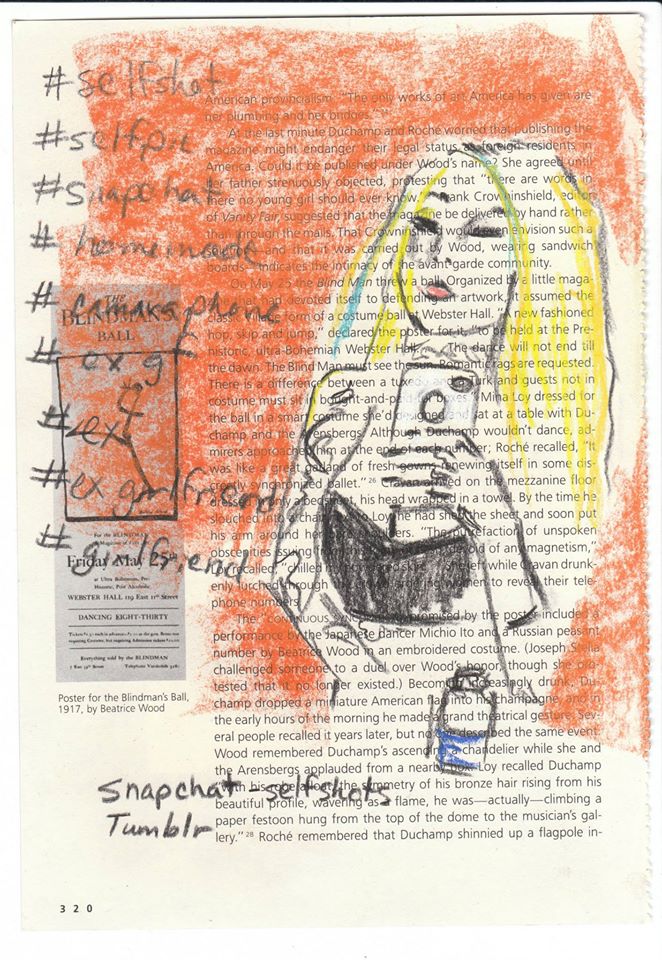 #selfshot
#selfpic
#snapchat
#homemade
#camera phone
#ex gf
#ex
#ex girlfriend
#girlfriend
American provincialism. "The only works of art America has given are
her plumbing and her bridges."
At the last minute Duchamp and Roché worried that publishing the
magazine might endanger their legal status as foreign residents in
America. Could it be published under Wood's name? She agreed until
her father strenuously objected, protesting that "there are words in
there no young girl should ever know." Frank Crowninshield, editor
of Vanity Fair, suggested that the magazine be delivered by hand rather
than through the mails. That Crowninshield would envision such a
and that it was carried out by Wood, wearing sandwich
boards indicates the intimacy of the avant-garde community.
On May 25 the Blind Man threw a ball. Organized by a little maga-
that had devoted itself to expanding artwork, it assumed the
form of a costume ball at Webster Hall. "A new fashioned
hop, skip and jump," declared the poster for it, to be held at the Pre-
historic, ultra-Bohemian Webster Hall. The dance will not end till
the dawn. The Blind Man must see the sun. Romantic rags are requested.
There is a difference between a tuxedo and a Turk and guests not in
costume must sit in bought-and-paid-for boxes." Mina Loy dressed for
the ball in a smart costume she'd designed and sat at a table with Du-
champ and the Arensbergs. Although Duchamp wouldn't dance, ad-
mirers approached him at the end of each number; Roché recalled, "It
was like a great garland of fresh gowns renewing itself in some dis-
creetly synchronized ballet." 26 Cravan arrived on the mezzanine floor
dressed only a bedsheet, his head wrapped in a towel. By the time he
slouched into a chair Loy he had shed the sheet and soon put
his arm around her shoulders. "The putrefaction of unspoken
obscenities issuing from this devoid of any magnetism,"
recalled, "chilled my left while Cravan drunk-
enly lurched through the women to reveal their tele-
phone numbers.
The continuous syncopation promised by the poster included a
performance by the Japanese dancer Michio Ito and a Russian peasant
number by Beatrice Wood in an embroidered costume. (Joseph Stella
challenged someone to a duel over Wood's honor, though she pro-
tested that it no longer existed.) Becoming increasingly drunk, Du-
champ dropped a miniature American flag into his champagne, and in
the early hours of the morning he made a grand theatrical gesture. Sev-
eral people recalled it years later, but no one described the same event.
Wood remembered Duchamp's ascending a chandelier while she and
the Arensbergs applauded from a nearby box. Loy recalled Duchamp
with his robe afloat, the symmetry of his bronze hair rising from his
beautiful profile, wavering as a flame, he was—actually—climbing a
paper festoon hung from the top of the dome to the musician's gal-
lery." 28 Roché remembered that Duchamp shinnied up a flagpole in-
THE
BLINDMAN'S
BALL
For the BLINDMAN
A Magazine of Vers Art
Friday May 25th
at Ultra Bohemian, Pre-
Historic, Post Alcoholic
WEBSTER HALL 119 East 11th Street
DANCING EIGHT-THIRTY
Everything sold by the BLINDMAN
Poster for the Blindman's Ball,
1917, by Beatrice Wood
Snapchat-selfshots
Tumblr
320